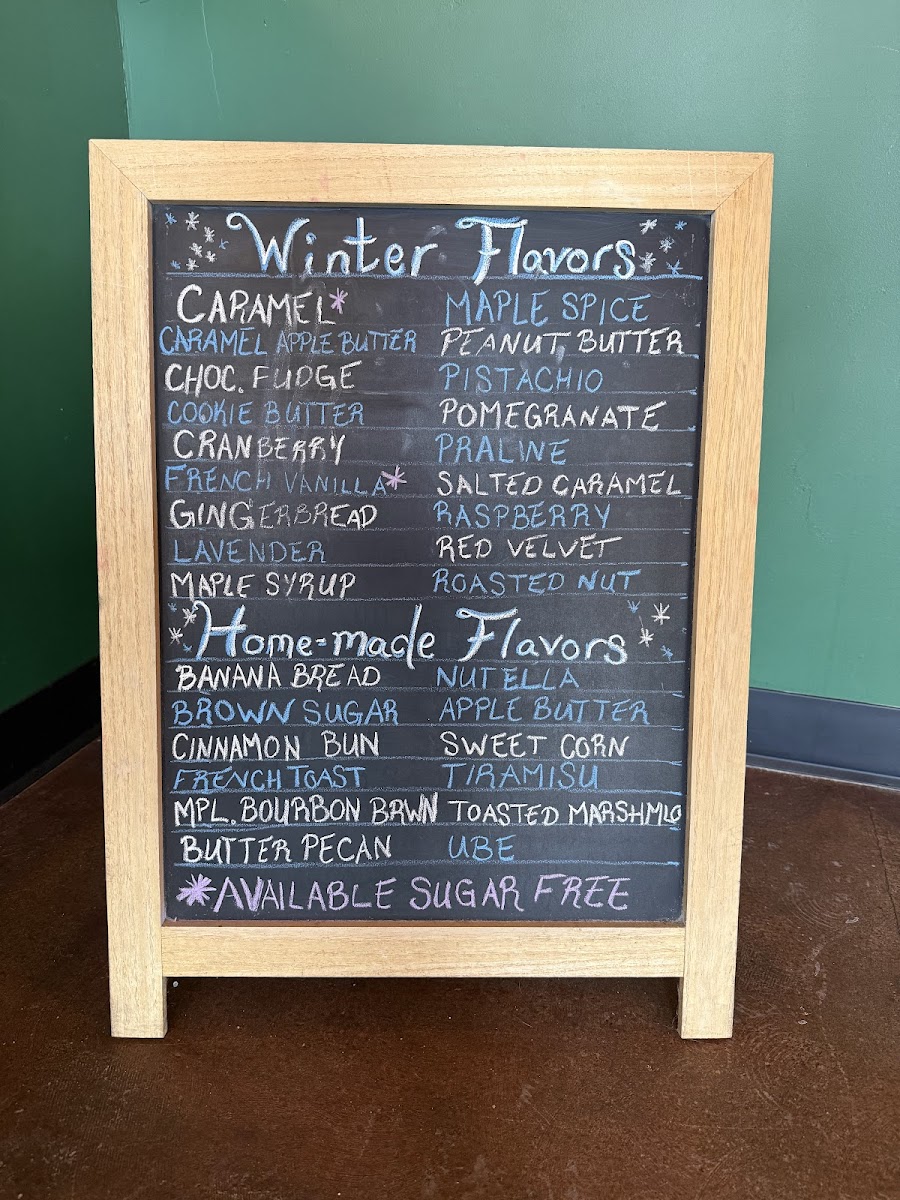 Winter Flavors
CARAMEL* MAPLE SPICE
CARAMEL APPLE BUTTER PEANUT BUTTER
CHOC. FUDGE PISTACHIO
COOKIE BUTTER POMEGRANATE
CRANBERRY PRALINE
FRENCH VANILLA* SALTED CARAMEL
GINGERBREAD RASPBERRY
LAVENDER RED VELVET
MAPLE SYRUP ROASTED NUT
Home-made Flavors
BANANA BREAD NUTELLA
BROWN SUGAR APPLE BUTTER
CINNAMON BUN SWEET CORN
FRENCH TOAST TIRAMISU
MPL. BOURBON BRWN TOASTED MARSHMLO
BUTTER PECAN UBE
*AVAILABLE SUGAR FREE